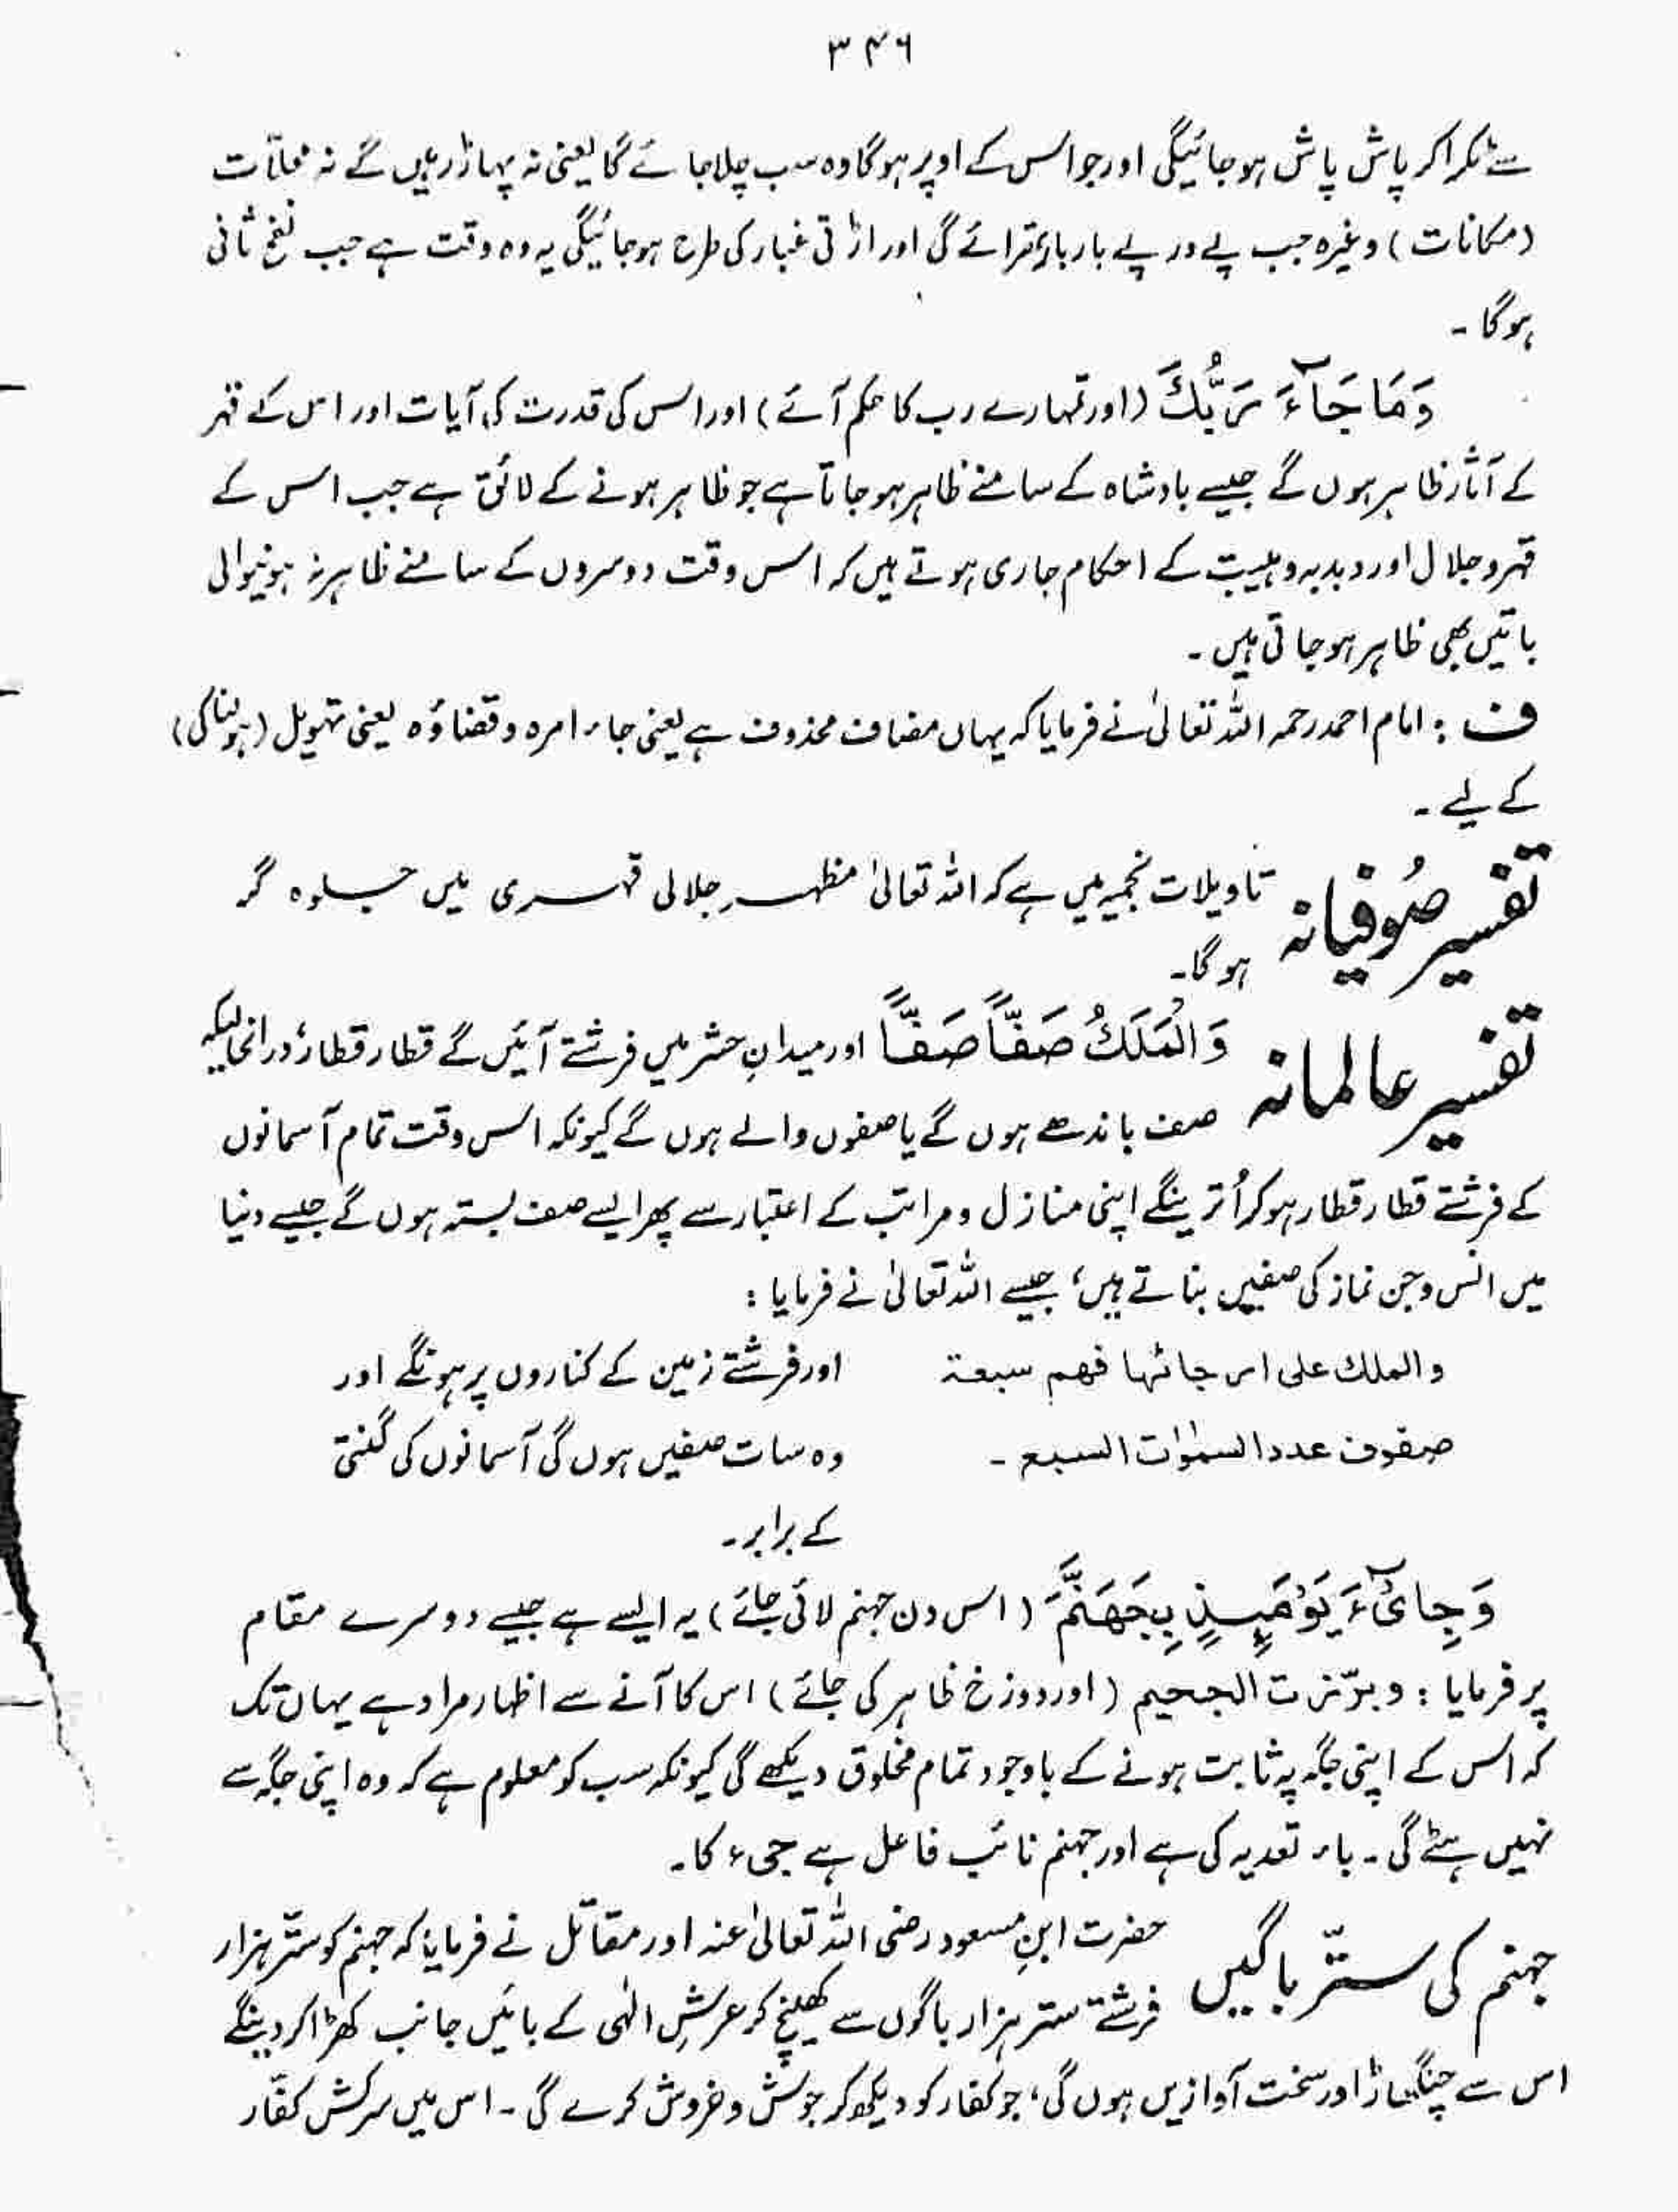 ۳۴۶
سے ٹکرا کر پاش پاش ہوجائیگی اور جو اس کے اوپر ہوگا وہ سب چلا جائے گا یعنی نہ پہاڑ رہیں گے نہ محلّات
(مکانات) وغیرہ جب پے در پے بار بار تھرائے گی اور اڑتی غبار کی طرح ہوجائیگی یہ وہ وقت ہے جب نفخ ثانی
ہوگا ۔
وَمَا جَآءَ رَبُّكَ (اور تمہارے رب کا حکم آئے) اور اس کی قدرت کی آیات اور اس کے قہر
کے آثار ظاہر ہوں گے جیسے بادشاہ کے سامنے ظاہر ہوجاتا ہے جو ظاہر ہونے کے لائق ہے جب اس کے
قہر و جلال اور دبدبہ و ہیبت کے احکام جاری ہوتے ہیں کہ اس وقت دوسروں کے سامنے ظاہر نہ ہونیوالی
باتیں بھی ظاہر ہوجاتی ہیں ۔
ف : امام احمد رحمہ اللہ تعالیٰ نے فرمایا کہ یہاں مضاف محذوف ہے یعنی جاء امرہ و قضاؤہ یعنی تہویل (ہولناکی)
کے لیے ۔
تفسیر صُوفیانہ تاویلات نجمیہ میں ہے کہ اللہ تعالیٰ مظہرِ جلالی قہری میں جلوہ گر
ہوگا۔
تفسیر عالمانہ وَالْمَلَكُ صَفًّا صَفًّا اور میدانِ حشر میں فرشتے آئیں گے قطار قطار، درانحالیکہ
صف باندھے ہوں گے یا صفوں والے ہوں گے کیونکہ اس وقت تمام آسمانوں
کے فرشتے قطار قطار ہوکر اُترینگے اپنی منازل و مراتب کے اعتبار سے پھر ایسے صف بستہ ہوں گے جیسے دنیا
میں انس و جن نماز کی صفیں بناتے ہیں، جیسے اللہ تعالیٰ نے فرمایا :
والملك على ارجائها فهم سبعة اور فرشتے زمین کے کناروں پر ہونگے اور
صفوف عدد السمٰوات السبع ۔ وہ سات صفیں ہوں گی آسمانوں کی گنتی
کے برابر ۔
وَجِائۡٓءَ يَوْمَىِٕذٍ بِجَهَنَّمَ (اس دن جہنم لائی جائے) یہ ایسے ہے جیسے دوسرے مقام
پر فرمایا : وبرّزت الجحیم (اور دوزخ ظاہر کی جائے) اس کا آنے سے اظہار مراد ہے یہاں تک
کہ اس کے اپنی جگہ پہ ثابت ہونے کے باوجود تمام مخلوق دیکھے گی کیونکہ سب کو معلوم ہے کہ وہ اپنی جگہ سے
نہیں ہٹے گی ۔ باء تعدیہ کی ہے اور جہنم نائب فاعل ہے جیء کا ۔
جہنم کی ستّر باگیں حضرت ابنِ مسعود رضی اللہ تعالیٰ عنہ اور مقاتل نے فرمایا کہ جہنم کو ستّر ہزار
فرشتے ستر ہزار باگوں سے کھینچ کر عرشِ الٰہی کے بائیں جانب کھڑا کردینگے
اس سے چنگھاڑ اور سخت آوازیں ہوں گی، جو کفار کو دیکھ کر جوش و خروش کرے گی ۔ اس میں سرکش کفّار